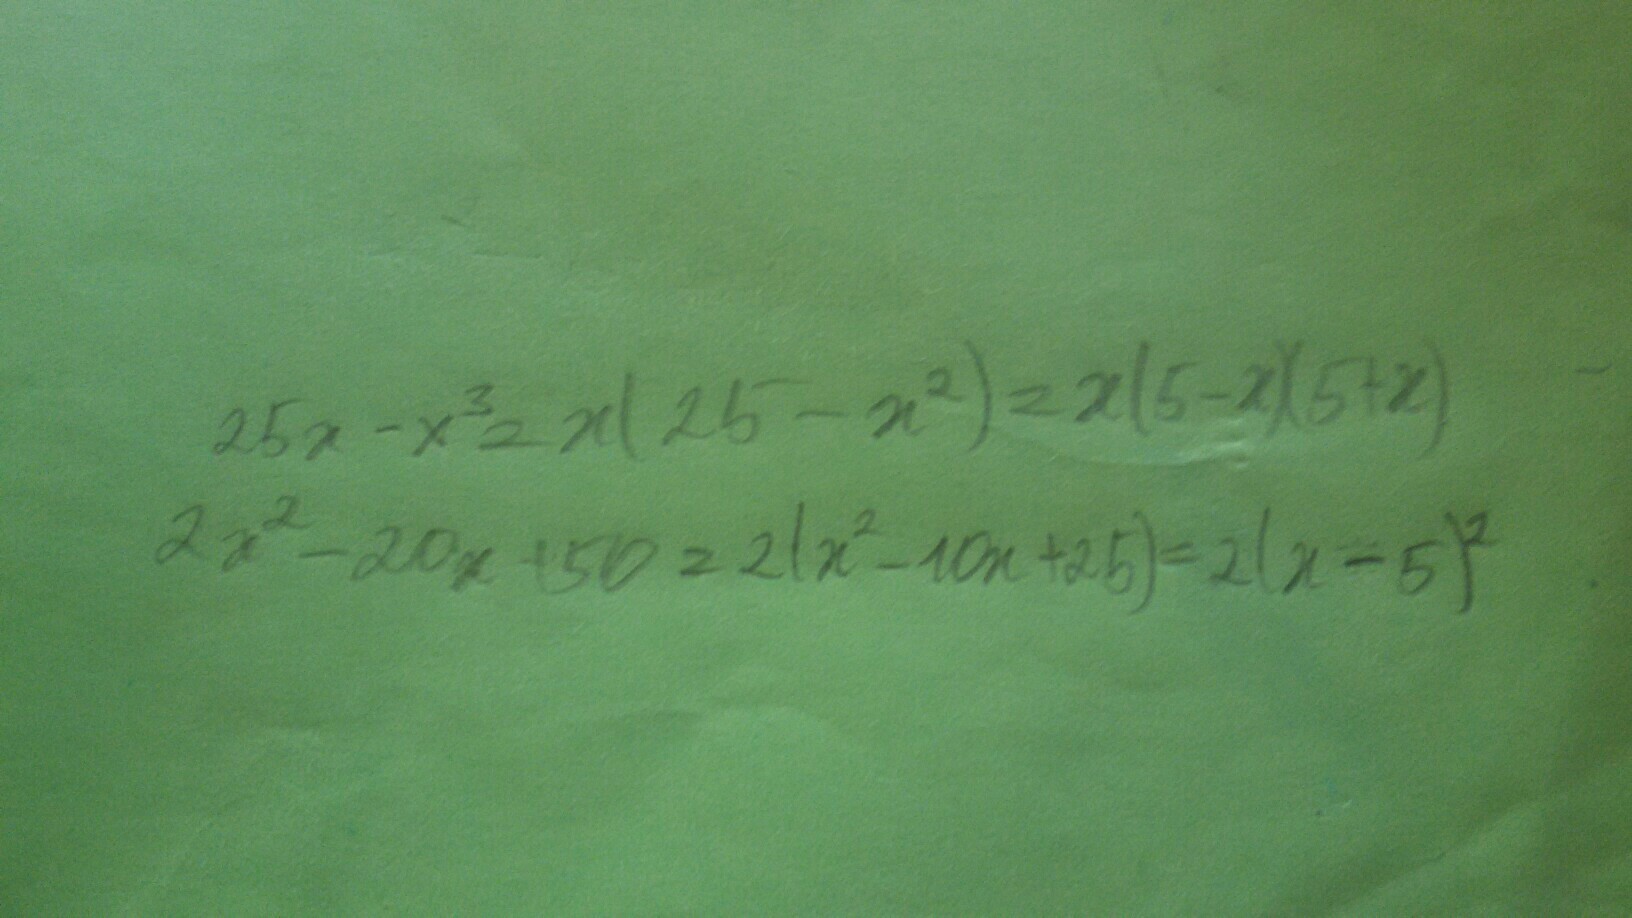 25x - x³ = x(25 - x²) = x(5-x)(5+x)
2x² - 20x + 50 = 2(x² - 10x + 25) = 2(x - 5)²